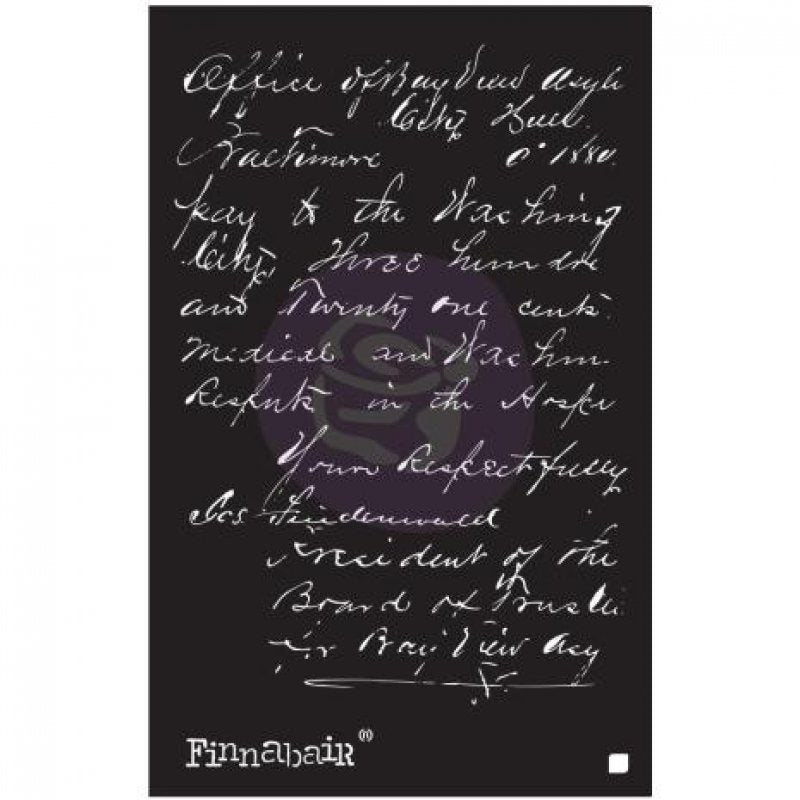 Office of Bay View Asyl
City Hall
Baltimore 1880.
pay to the Washing
City, Three hundre
and Twenty One cents
Medical and Washin
in the Hospi
Yours Respectfully
Jos Lindenwald
President of the
Board of Truste
for Bay View Asy
Finnabair®